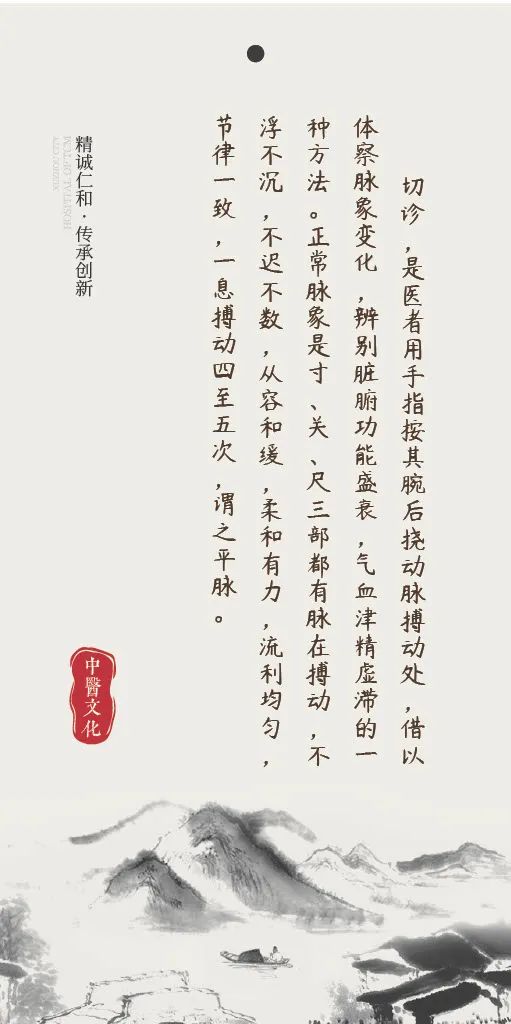 切诊，是医者用手指按其腕后挠动脉搏动处，借以
体察脉象变化，辨别脏腑功能盛衰，气血津精虚滞的一
种方法。正常脉象是寸、关、尺三部都有脉在搏动，不
浮不沉，不迟不数，从容和缓，柔和有力，流利均匀，
节律一致，一息搏动四至五次，谓之平脉。
精诚仁和·传承创新
中醫文化